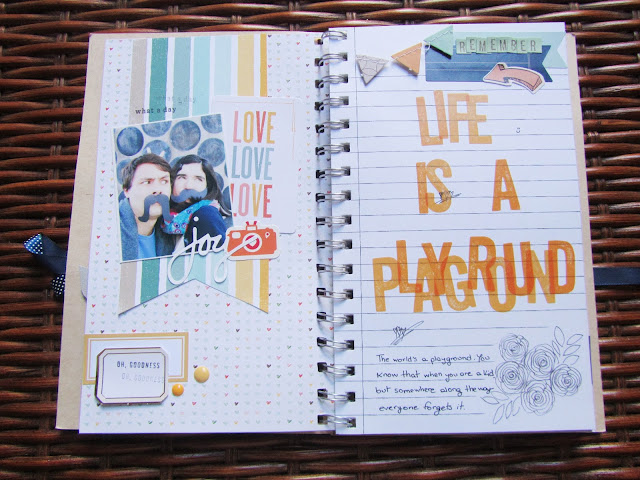 what a day
what a day
LOVE
LOVE
LOVE
joy
OH, GOODNESS
OH, GOODNESS
REMEMBER
LIFE
IS A
PLAYGROUND
The world's a playground. You
know that when you are a kid
but somewhere along the way
everyone forgets it.